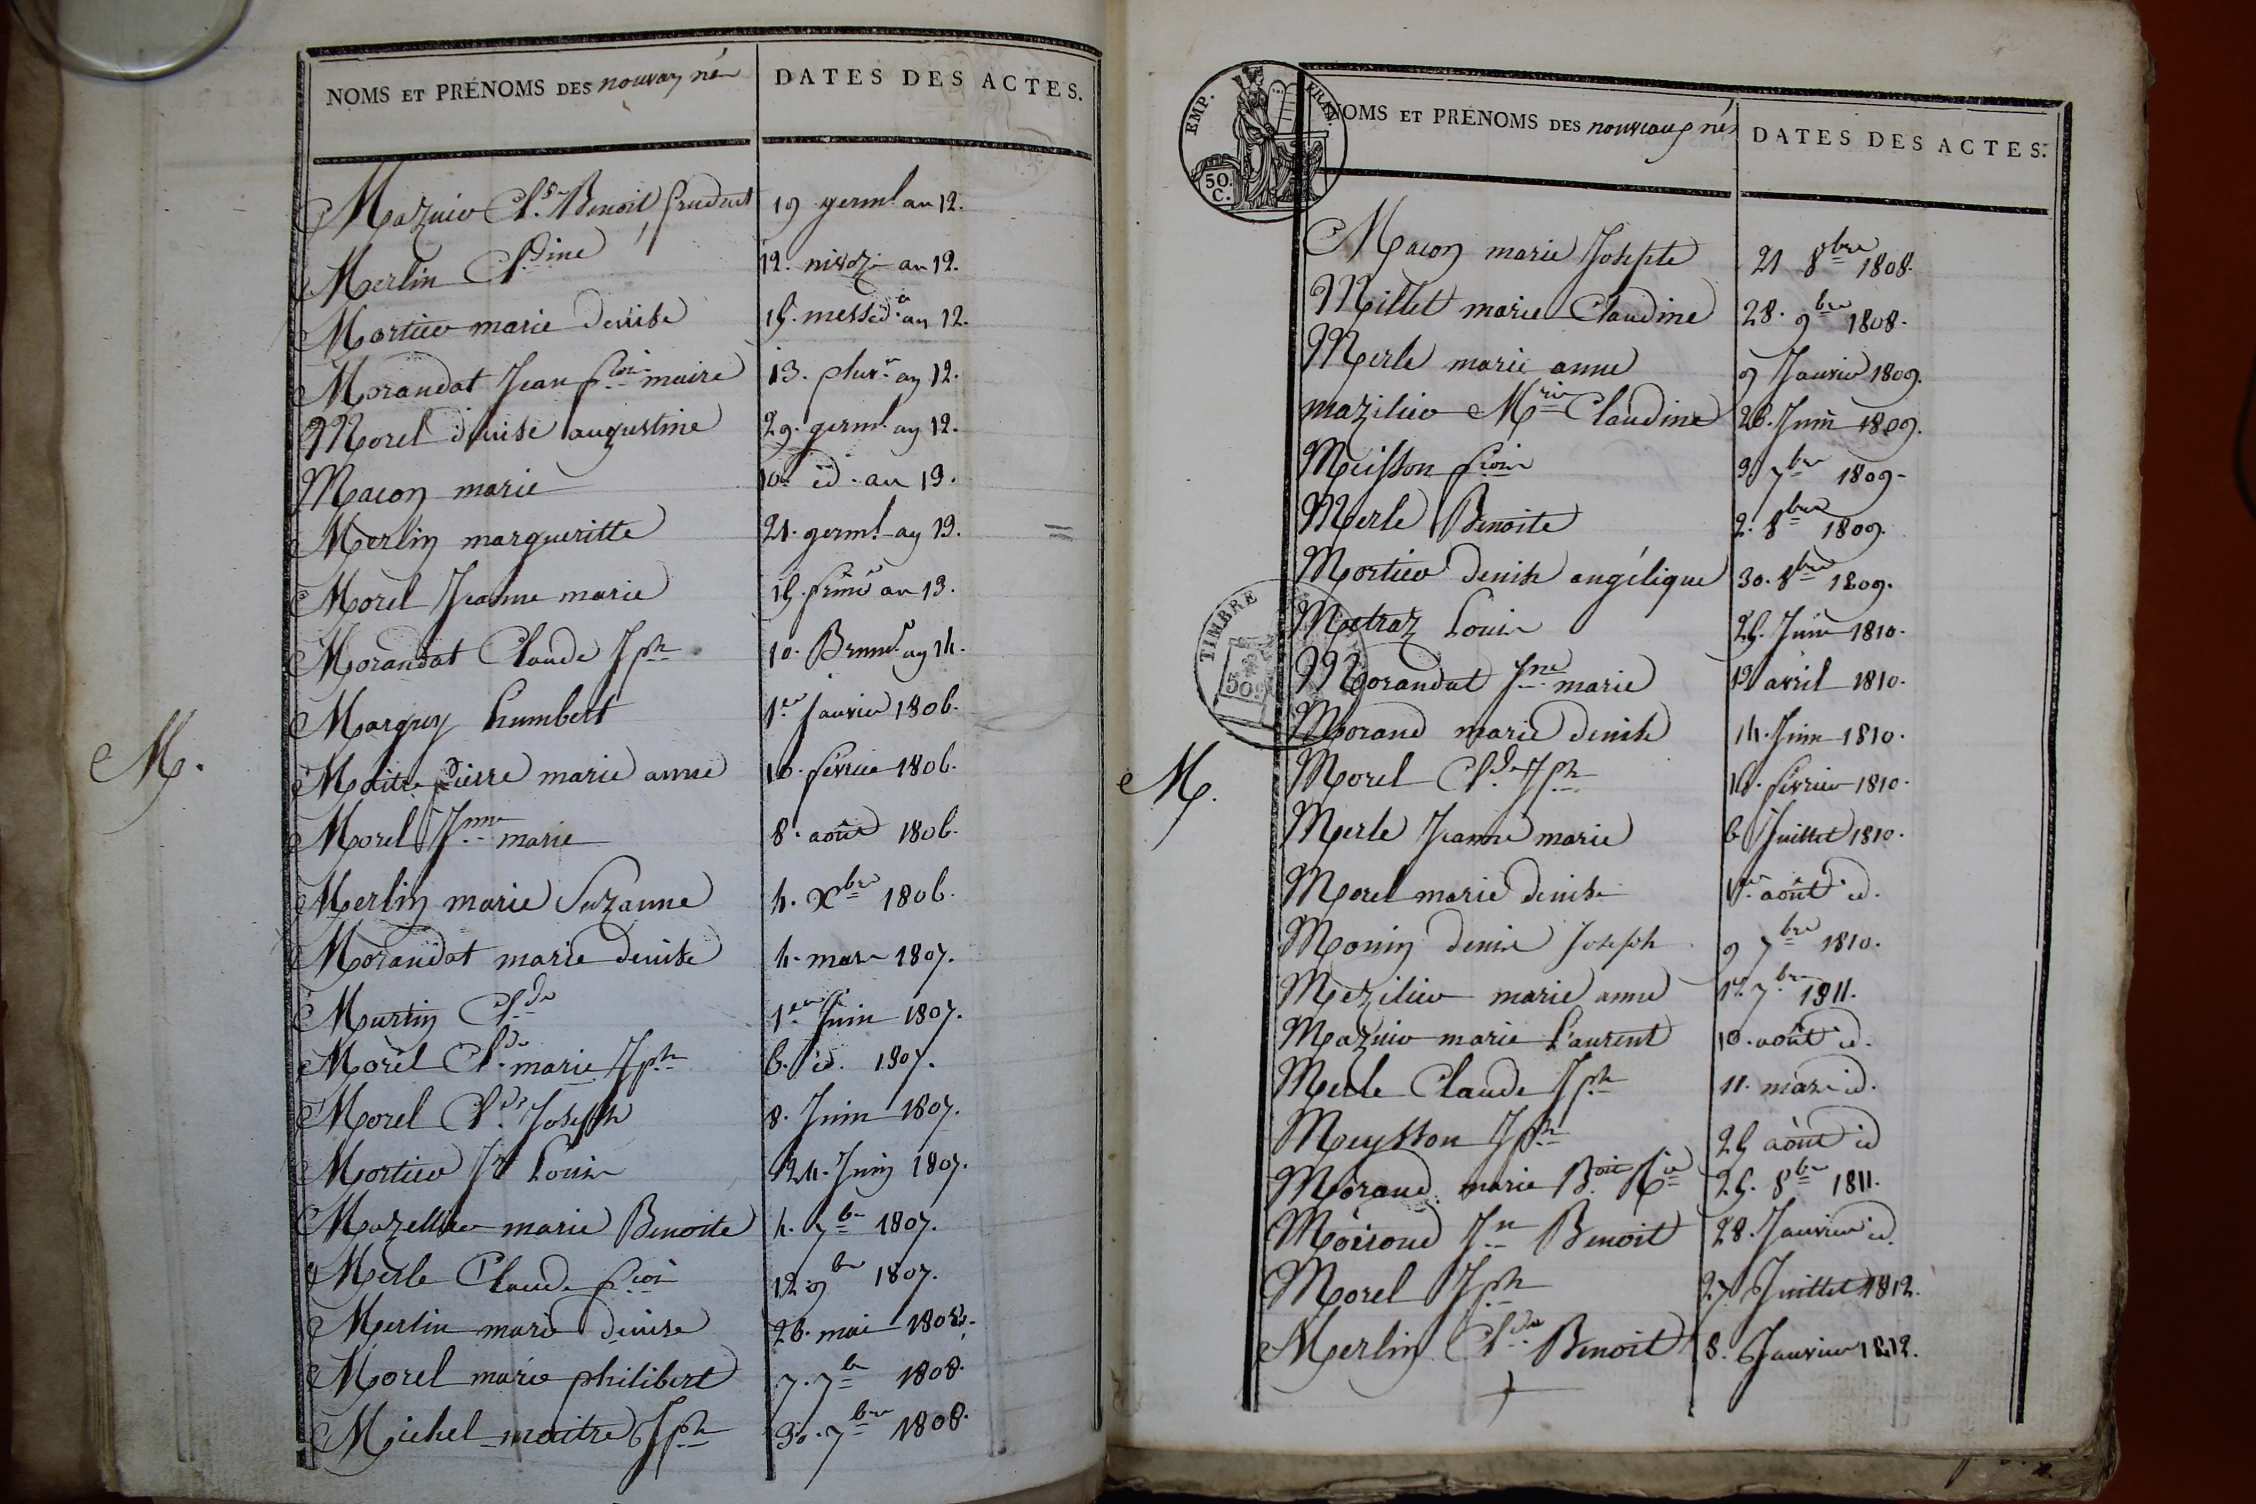 NOMS ET PRÉNOMS DES nouvaux nés
DATES DES ACTES.
Mazuier Cl.de Benoit prudent 19 germl. an 12.
Merlin Cl.dine 12. nivoze an 12.
Mortier marie denise 15. messid.or an 12.
Morandat Jean f.cois maire 13. pluv.e an 12.
Morel denise augustine 29. germl. an 12.
Macon marie 10. id. an 13.
Merlin margueritte 21. germl. an 13.
Morel Jeanne marie 15. frim.e an 13.
Morandat Claude Jph 10. Brum.e an 14.
Marguy humbert 1.er Janvier 1806.
Maitre pierre marie anne 10. fevrier 1806.
Morel Jnne marie 8. août 1806.
M.
Merlin marie Suzanne 4. Xbre 1806.
Morandat marie denise 4. mars 1807.
Martin Cl.de 1.er Juin 1807.
Morel Cl.de marie Jph 6. id. 1807.
Morel Cl.de Joseph 8. Juin 1807.
Mortier Jn Louis 24. Juin 1807.
Mazellier marie Benoite 4. 7bre 1807.
Merle Claude f.cois 12 9bre 1807.
Merlin marie denise 26. mai 1808.
Morel marie philibert 7. 7bre 1808.
Michel maitre Jph 30. 7bre 1808.
EMP. FRAN.
50. C.
NOMS ET PRÉNOMS DES nouveaux nés
DATES DES ACTES.
Macon marie Josephte 21 8bre 1808.
Millet marie Claudine 28. 9bre 1808.
Merle marie anne 9 Janvier 1809.
mazilier Mrie Claudine 26. Juin 1809.
Meisson f.cois 3 7bre 1809.
Merle Benoite 2. 8bre 1809.
Mortier denise angélique 30. 8bre 1809.
TIMBRE
Metraz Louis 25. Juin 1810.
Morandat Jne marie 12 avril 1810.
Morand marie denise 14. Juin 1810.
M.
Morel Cl.de Jph 16. fevrier 1810.
Merle Jeanne marie 6 Juillet 1810.
Morel marie denise 1.er août id.
Monin denis Joseph 9 7bre 1810.
Mezilier marie anne 17. 7bre 1811.
Mazuier marie Laurent 10. août id.
Merle Claude Jph 11. mars id.
Meysson Jph 25 août id
Morand marie B.oite 25. 8bre 1811.
Moiroud Jn Benoit 28. Janvier id.
Morel Jph 27 Juillet 1812.
Merlin Cl.de Benoit 8. Janvier 1812.